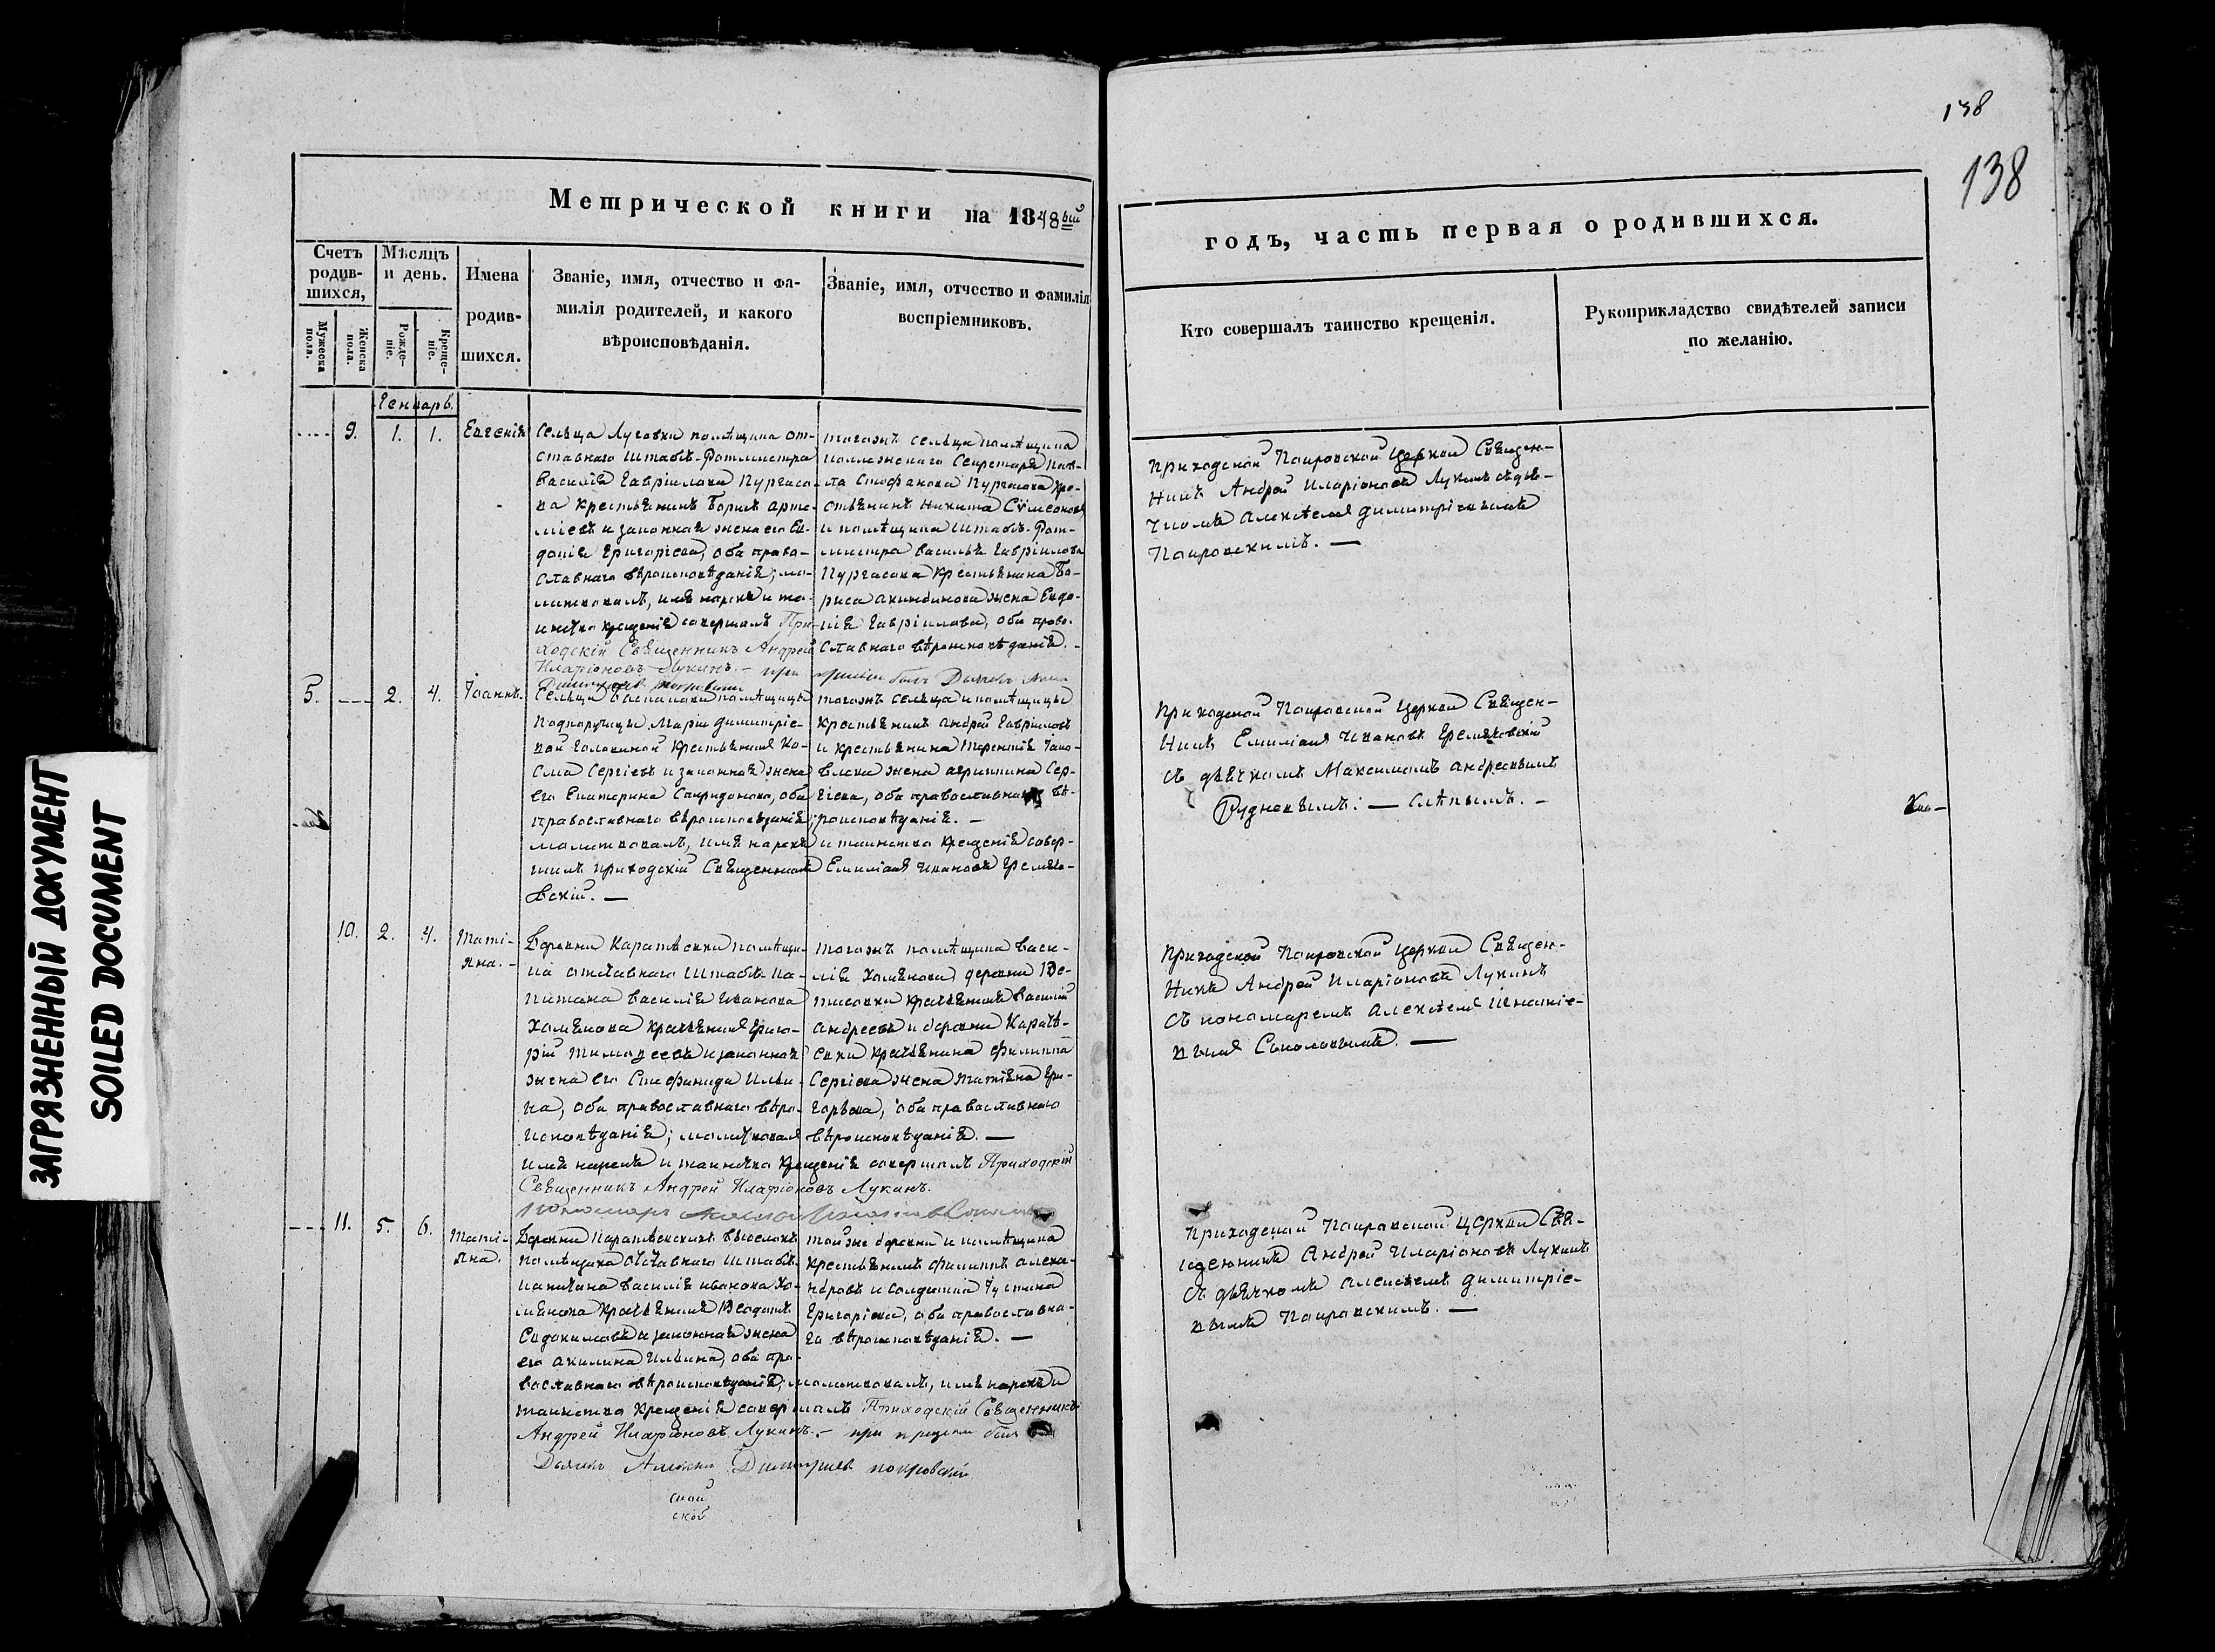 138
138
ЗАГРЯЗНЕННЫЙ ДОКУМЕНТ
SOILED DOCUMENT
Метрической книги на 1848ый
годъ, часть первая о родившихся.
Счетъ родив-шихся,
Мужеска пола.
Женска пола.
Мѣсяцъ и день.
Рожде-ніе.
Креще-ніе.
Имена
родив-
шихся.
Званіе, имя, отчество и фа-
милія родителей, и какого
вѣроисповѣданія.
Званіе, имя, отчество и фамилія
воспріемниковъ.
Кто совершалъ таинство крещенія.
Рукоприкладство свидѣтелей записи
по желанію.
Генварь.
9. 1. 1. Евгенія
Сельца Луговки помѣщика от-
ставнаго Штабъ-Ротмистра
Василія Гавріилова Пургасо-
ва крестьянинъ Борисъ Арте-
міевъ и законная жена его Ев-
докія Григоріева, оба право-
славнаго вѣроисповѣданія; мо-
литвовалъ, имя нарекъ и та-
инство крещенія совершалъ При-
ходскій Священникъ Андрей
Иларіоновъ Лукинъ. – при
тогожъ сельца помѣщика
Коллежскаго Секретаря Пав-
ла Стефанова Пургасова кре-
стьянинъ Никита Сѵмеоновъ
и помѣщика Штабъ-Рот-
мистра Василья Гавріилова
Пургасова крестьянина Бо-
риса Акиндинова жена Евдо-
кія Гавріилова, оба право-
славнаго вѣроисповѣданія. –
Приходской Покровской Церкви Священ-
никъ Андрей Иларіоновъ Лукинъ съ дья-
чкомъ Алексѣемъ Димитріевымъ
Покровскимъ. —
5. 2. 4. Іоаннъ.
Сельца помѣщицы
Подпоручицы Маріи Димитріе-
вой Головиной крестьянинъ Ко-
сма Сергіевъ и законная жена
его Екатерина Спиридонова, оба
православнаго вѣроисповѣданія;
тогожъ сельца и помѣщицы
крестьянинъ Андрей Гавріиловъ
и крестьянина Терентія Іако-
влева жена Агриппина Сер-
гіева, оба православнаго вѣ-
роисповѣданія. –
молитвовалъ, имя нарекъ и таинство крещенія совер-
шилъ приходскій Священникъ Емиліанъ Ивановъ Еремѣе-
вскій. —
Приходской Покровской Церкви Священ-
никъ Емиліанъ Ивановъ
съ дьячкомъ Максимомъ Андреевымъ
Рудневымъ: — слѣпымъ. –
10. 2. 4. Тати-
яна. –
Деревни Каратѣевки помѣщи-
ка отставнаго Штабсъ-Ка-
питана Василія Иванова
Хомякова крестьянинъ Григо-
рій Тимоѳеевъ и законная
жена его Стефанида Ильи-
на, оба православнаго вѣро-
исповѣданія; молитвовалъ
имя нарекъ и таинство крещенія совершалъ Приходскій
Священникъ Андрей Иларіоновъ Лукинъ.
тогожъ помѣщика Васи-
лія Хомякова деревни
крестьянинъ Василій
Андреевъ и деревни Каратѣ-
евки крестьянина Филиппа
Сергіева жена Татіяна Гри-
горьева, оба православнаго
вѣроисповѣданія. —
Приходской Покровской Церкви Священ-
никъ Андрей Иларіоновъ Лукинъ
съ пономаремъ Алексѣемъ Игнатіе-
вымъ Соколовымъ. —
11. 5. 6. Тати-
яна.
Деревни
помѣщика отставнаго Штабсъ-
капитана Василія Иванова Хо-
мякова крестьянинъ Ѳеодотъ
Евдокимовъ и законная жена
его Акилина Ильина, оба пра-
вославнаго вѣроисповѣданія; молитвовалъ, имя нарекъ и
таинство крещенія совершалъ Приходскій Священникъ
Андрей Иларіоновъ Лукинъ. – при крещеніи былъ
Дьячекъ Алексѣй Димитріевъ Покровскій
той же деревни и помѣщика
крестьянинъ Филиппъ Алекса-
ндровъ и солдатка Іустина
Григоріева, оба православна-
го вѣроисповѣданія. —
Приходской Покровской Церкви Свя-
щенникъ Андрей Иларіоновъ Лукинъ
съ дьячкомъ Алексѣемъ Димитріе-
вымъ Покровскимъ. —
ской